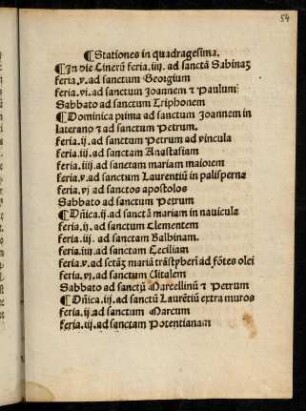 54
¶Stationes in quadragesima.
¶In die Cinerū feria.iiij. ad sanctā Sabinaȝ
feria.v.ad sanctum Georgium
feria.vi.ad sanctum Joannem ⁊ Paulum:
Sabbato ad sanctum Triphonem
¶Dominica prima ad sanctum Joannem in
laterano ⁊ ad sanctum Petrum.
feria.ij.ad sanctum Petrum ad vincula
feria.iij.ad sanctam Anastasiam
feria.iiij.ad sanctam mariam maiorem
feria.v.ad sanctum Laurentiū in palisperna
feria.vj ad sanctos apostolos
Sabbato ad sanctum Petrum
¶Dñica.ij.ad sanctā mariam in nauicula
feria.ij.ad sanctum Clementem
feria.iij.ad sanctam Balbinam.
feria.iiij.ad sanctam Ceciliam
feria.v.ad sctāȝ mariā trāstyberī ad fōtes olei
feria.vi.ad sanctum Uitalem
Sabbato ad sanctū Marcellinū ⁊ Petrum
¶Dñica.iij.ad sanctū Laurētiū extra muros
feria.ij.ad sanctum Marcum
feria.iij.ad sanctam Potentianam